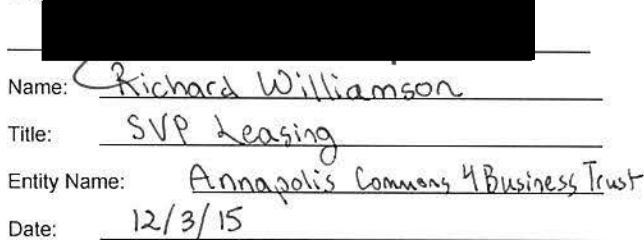 Name: Richard Williamson
Title: SVP Leasing
Entity Name: Annapolis Commons 4 Business Trust
Date: 12/3/15